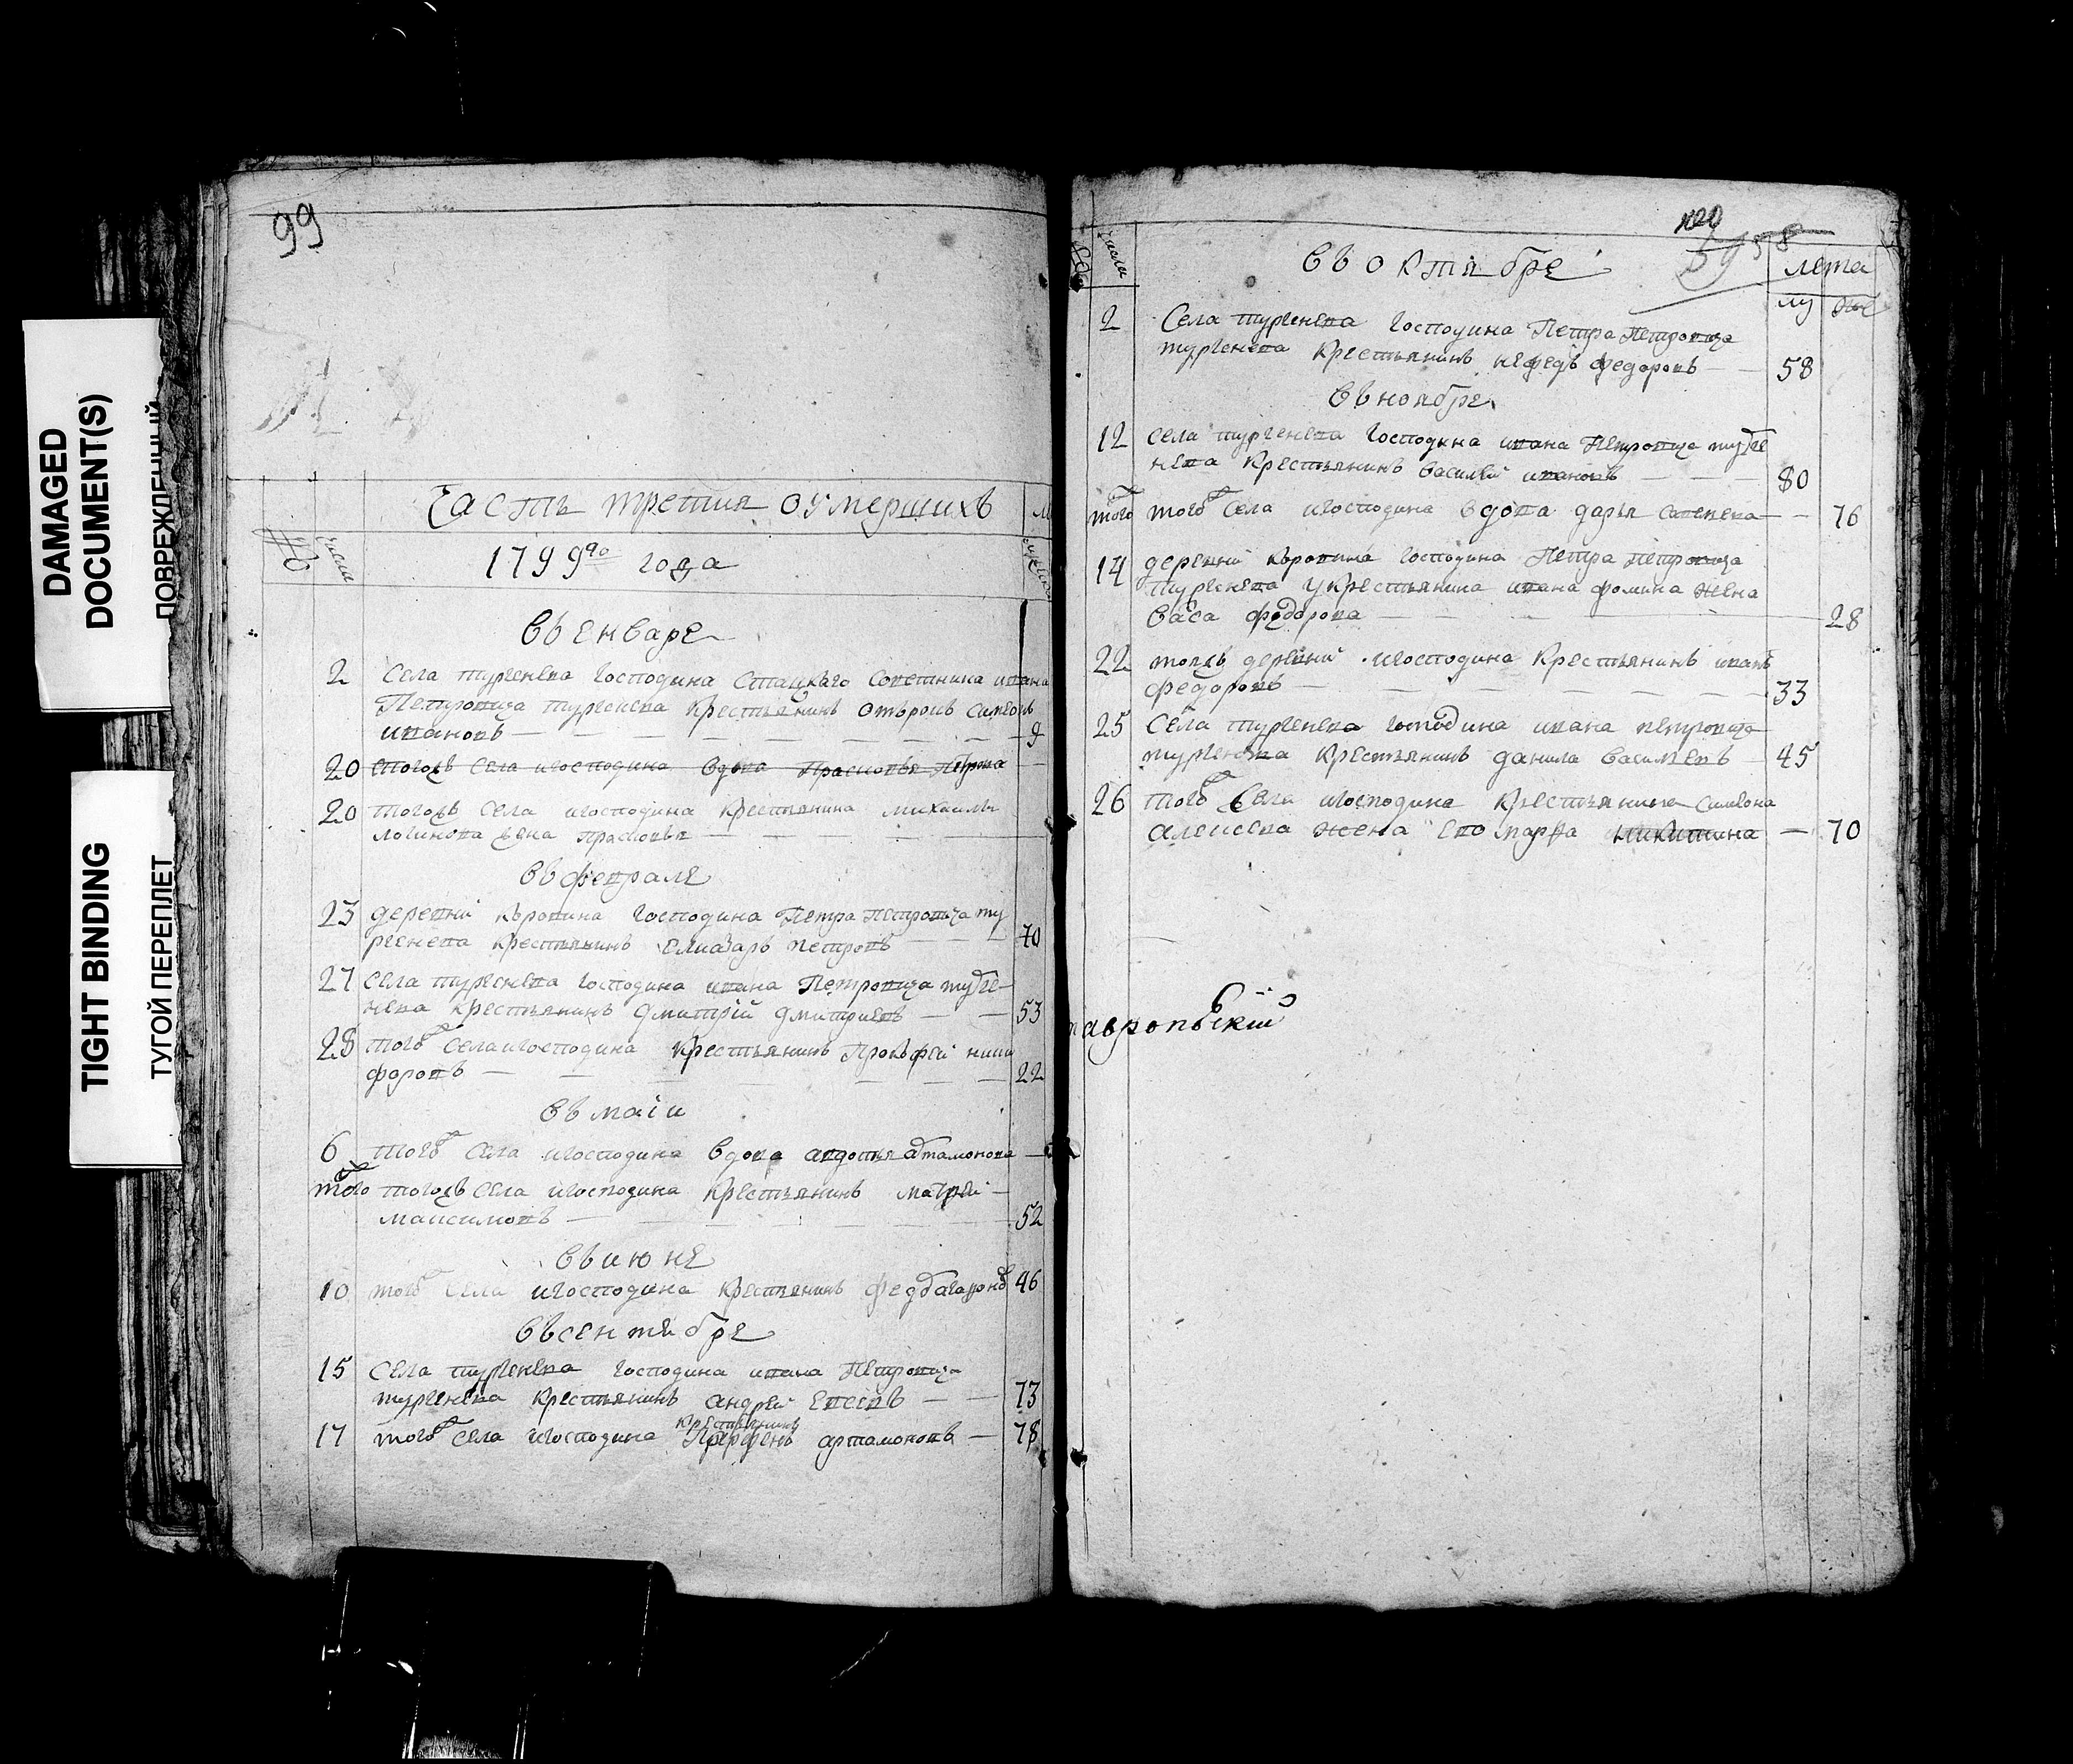 DAMAGED
DOCUMENT(S)
ПОВРЕЖДЕННЫЙ
TIGHT BINDING
ТУГОЙ ПЕРЕПЛЕТ
99
Часть третия оумершихъ
числа
1799го года
въ енваре
2 Села тургенева господина Статцкаго Советника ивана
Петровича тургенева крестьянинъ отърокъ симеонъ
ивановъ — 9
20 тогожъ села игосподина вдова Прасковья Петрова
20 тогожъ села игосподина крестьянина михаилы
логинова жена прасковья —
въ феврале
23 деревни коровина господина Петра Петровича ту
ргенева крестьянинъ Елиазаръ петровъ — 70
27 села тургенева господина ивана Петровича турге
нева крестьянинъ дмитрiй дмитриевъ — 53
28 тогожъ села игосподина крестьянинъ Прокофей ники
форовъ — 22
въ маiи
6 тогожъ села игосподина вдова авдотья артамонова —
того тогожъ села игосподина крестьянинъ матвей
максимовъ — 52
въ июне
10 тогожъ села игосподина крестьянинъ 46
въ сентябре
15 села тургенева господина ивана Петровича
тургенева крестьянинъ андрей Евсевъ — 73
крестьянинъ
17 тогожъ села игосподина Парфенъ артамоновъ — 78
58
числа
въ октябре
лета
му же
2 Села тургенева господина Петра Петровича
тургенева крестьянинъ нефедъ федоровъ — 58
въ ноябре
12 села тургенева господина ивана Петровича турге
нева крестьянинъ василей ивановъ — 80
того тогожъ села игосподина вдова дарья савельева — 76
14 деревни коровина господина Петра Петровича
тургенева у крестьянина ивана фомина жена
васса федорова — 28
22 тояжъ деревни игосподина крестьянинъ иванъ
федоровъ — 33
25 Села тургенева господина ивана петровича
тургенева крестьянинъ данила васильевъ — 45
26 тогожъ села игосподина крестьянина симеона
алексеева жена ево марфа никитина — 70